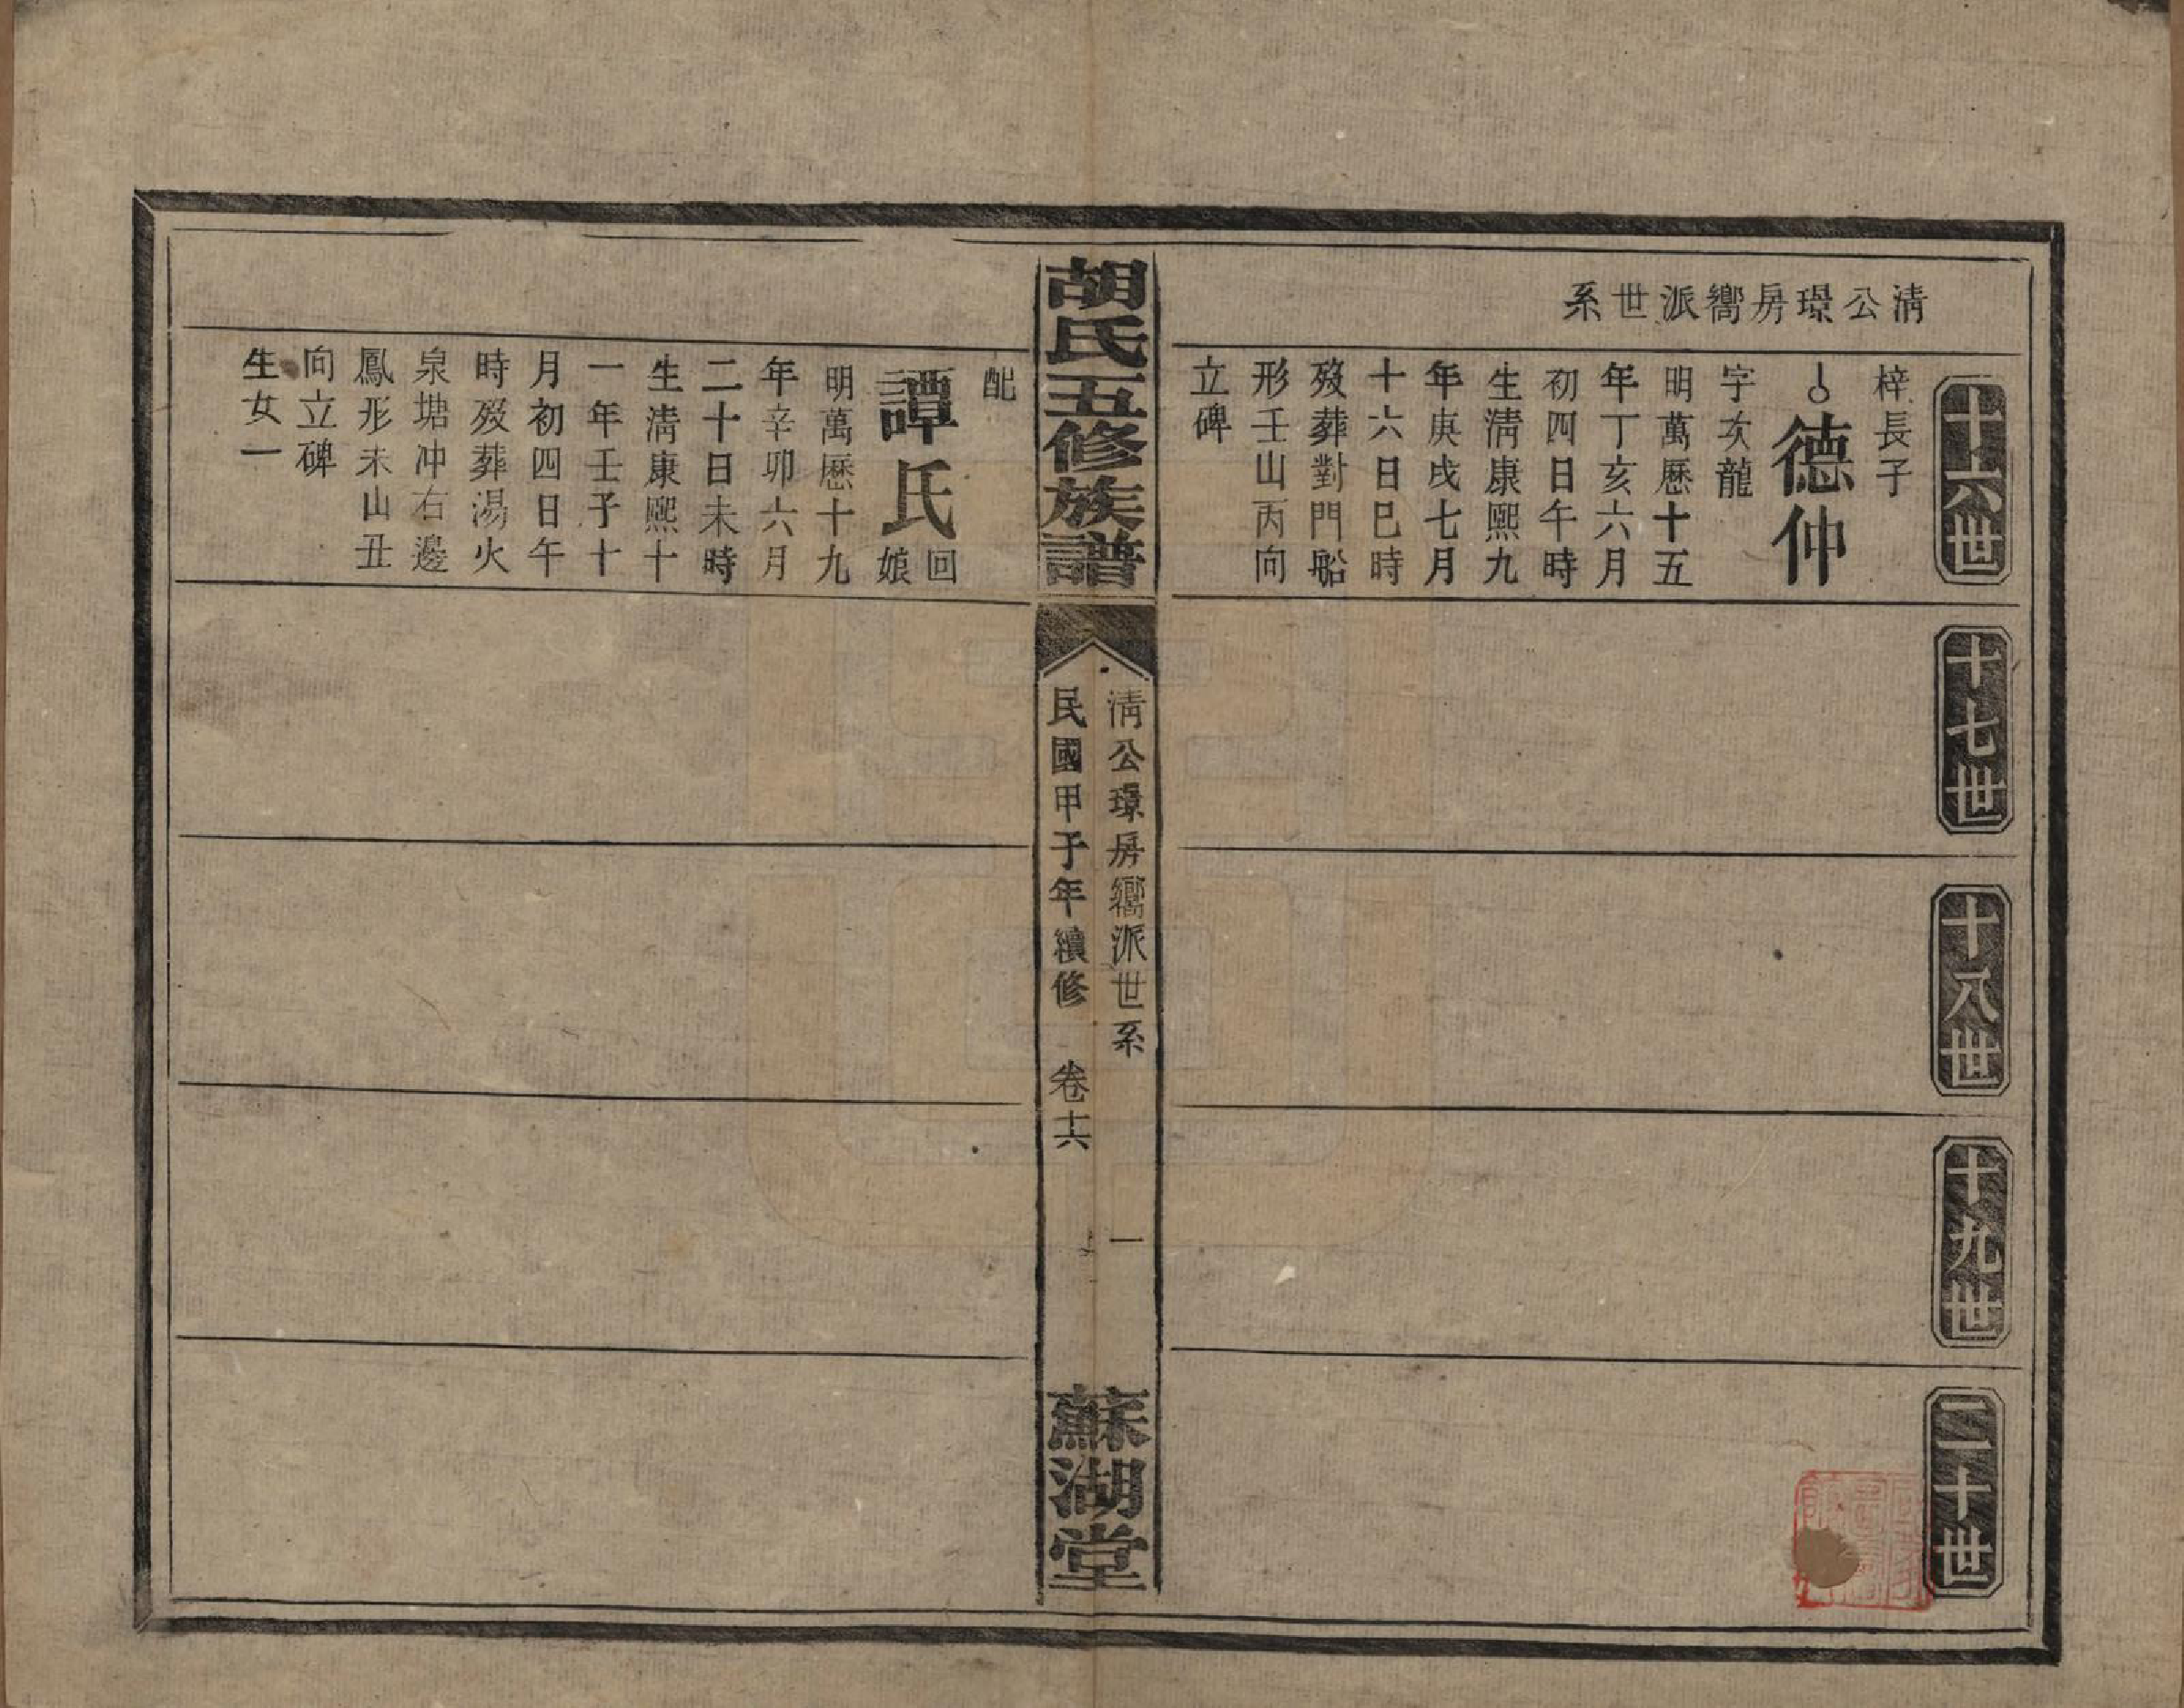 清公璟房嚮派世系
十六世
十七世
十八世
十九世
二十世
梓長子
德仲
字次龍
明萬厯十五
年丁亥六月
初四日午時
生清康熙九
年庚戌七月
十六日巳時
歿葬對門船
形壬山丙向
立碑
胡氏五修族譜
清公璟房嚮派世系
一
民國甲子年續修
卷十六
蘇湖堂
配
譚氏
回娘
明萬厯十九
年辛卯六月
二十日未時
生清康熙十
一年壬子十
月初四日午
時歿葬湯火
泉塘冲右邊
鳳形未山丑
向立碑
生女一